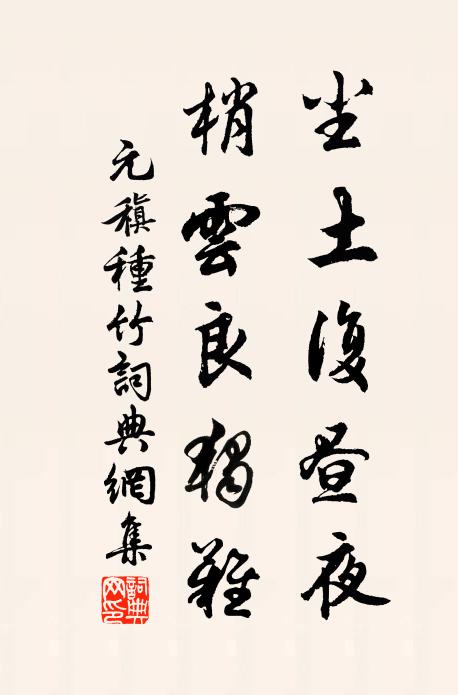 尘土復昼夜
梢雲良獨難
元稹種竹詞典網集
詞典網印